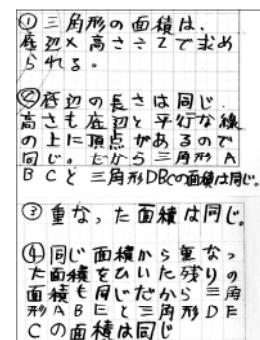 ①三角形の面積は、
底辺×高さ÷2で求め
られる。
②底辺の長さは同じ
高さも底辺と平行な線
の上に頂点があるので
同じ。だから三角形A
BCと三角形DBCの面積は同じ。
③重なった面積は同じ。
④同じ面積から重なっ
た面積をひいた残りの
面積も同じだから三角
形ABEと三角形DE
Cの面積は同じ